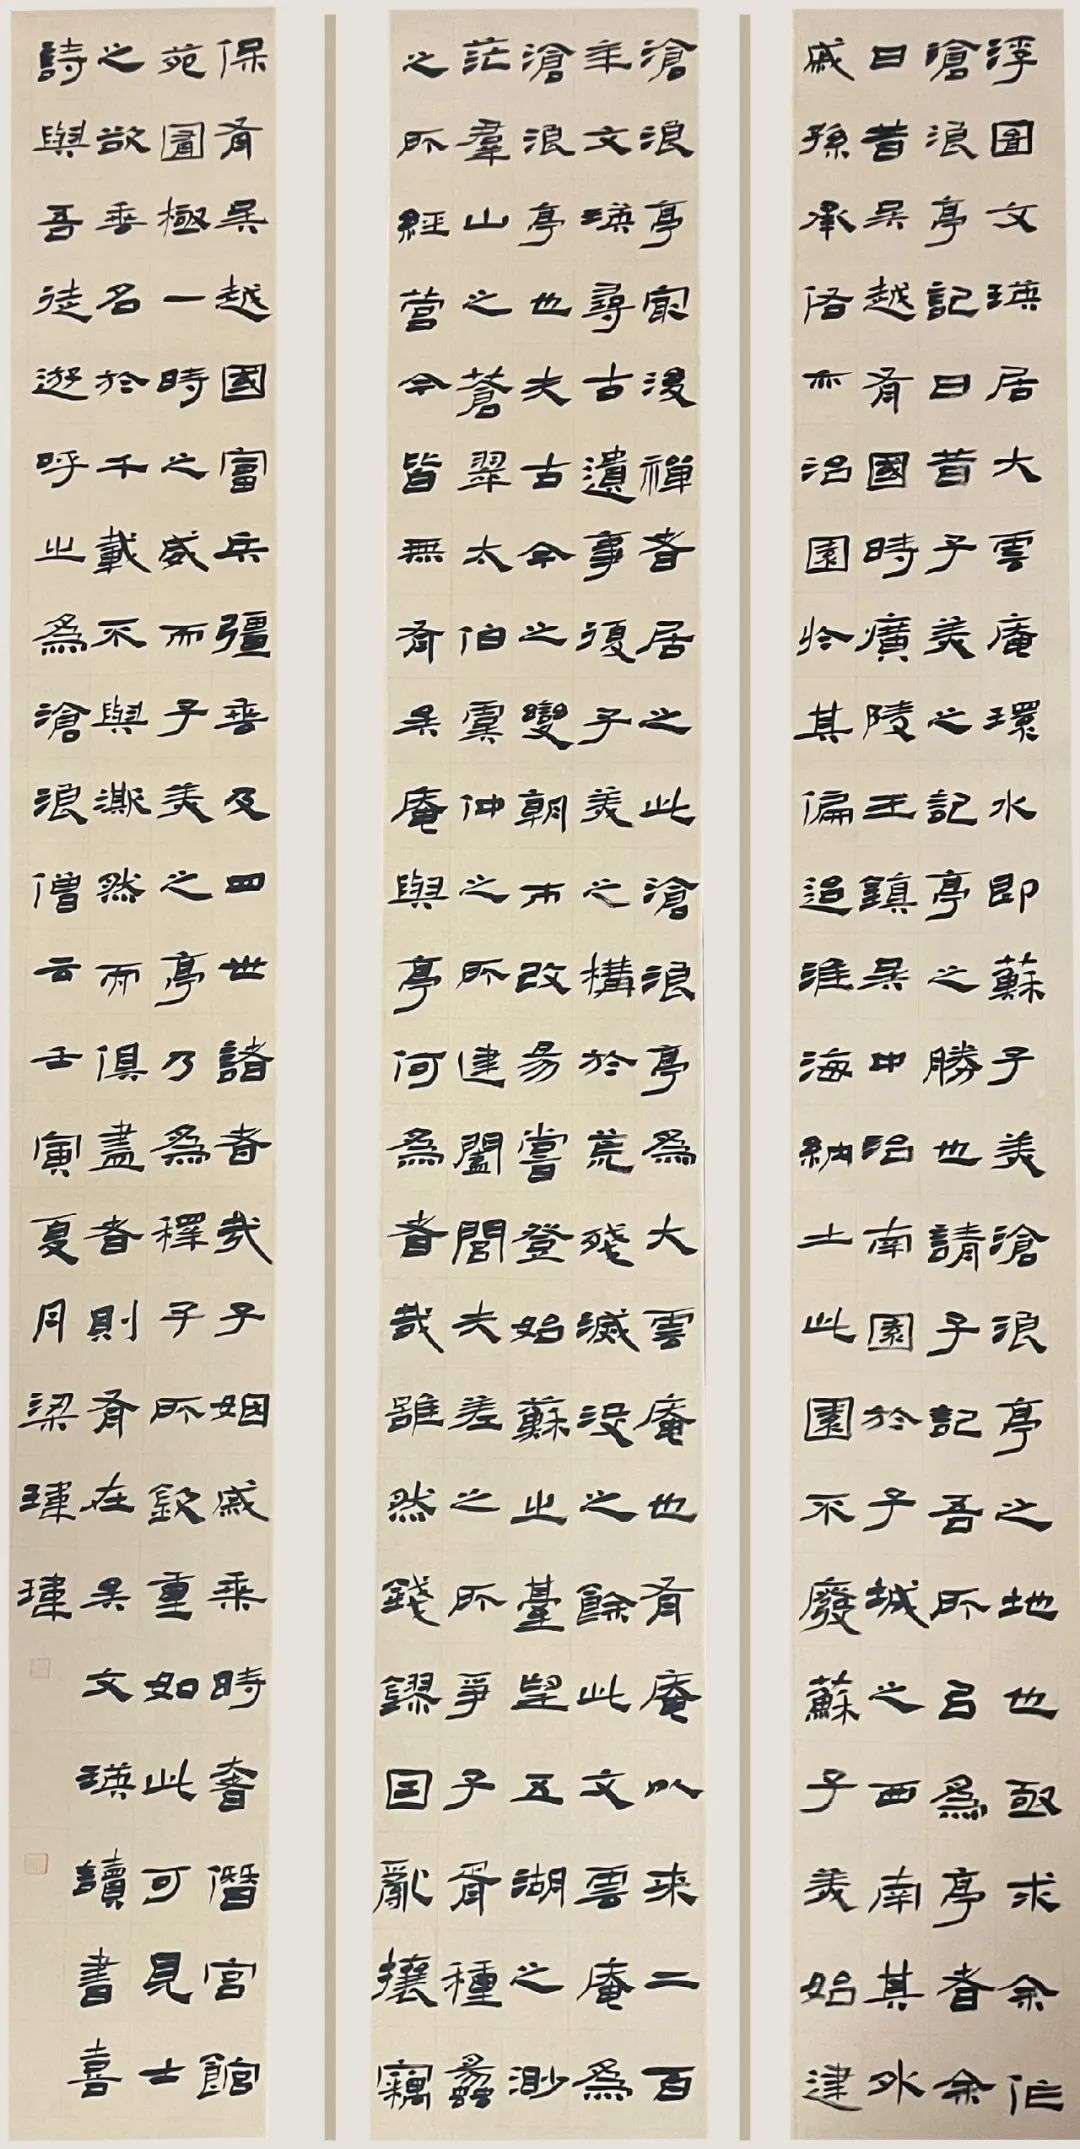 浮圖文瑛居大雲庵環水即蘇子美滄浪亭之地也亟求余作
滄浪亭記曰昔子美之記亭之勝也請子記吾所以為亭者余
曰昔吳越有國時廣陵王鎮吳中治南園於子城之西南其外
戚孫承佑亦治園於其偏迨淮海納土此園不廢蘇子美始建
滄浪亭最後禪者居之此滄浪亭為大雲庵也有庵以來二百
年文瑛尋古遺事復子美之構於荒殘滅沒之餘此文雲庵為
滄浪亭也夫古今之變朝市改易嘗登姑蘇之臺望五湖之渺
茫羣山之蒼翠太伯虞仲之所建闔閭夫差之所爭子胥種蠡
之所經營今皆無有矣庵與亭何為者哉雖然錢鏐因亂攘竊
保有吳越國富兵彊垂及四世諸者哉子姻戚乘時奢僭宮館
苑圖極一時之盛而子美之亭乃為釋子所欽重如此可見士
之欲垂名於千載不與澌然而俱盡者則有在矣文瑛讀書喜
詩與吾徒遊呼之為滄浪僧云壬寅夏月梁瑋瑋